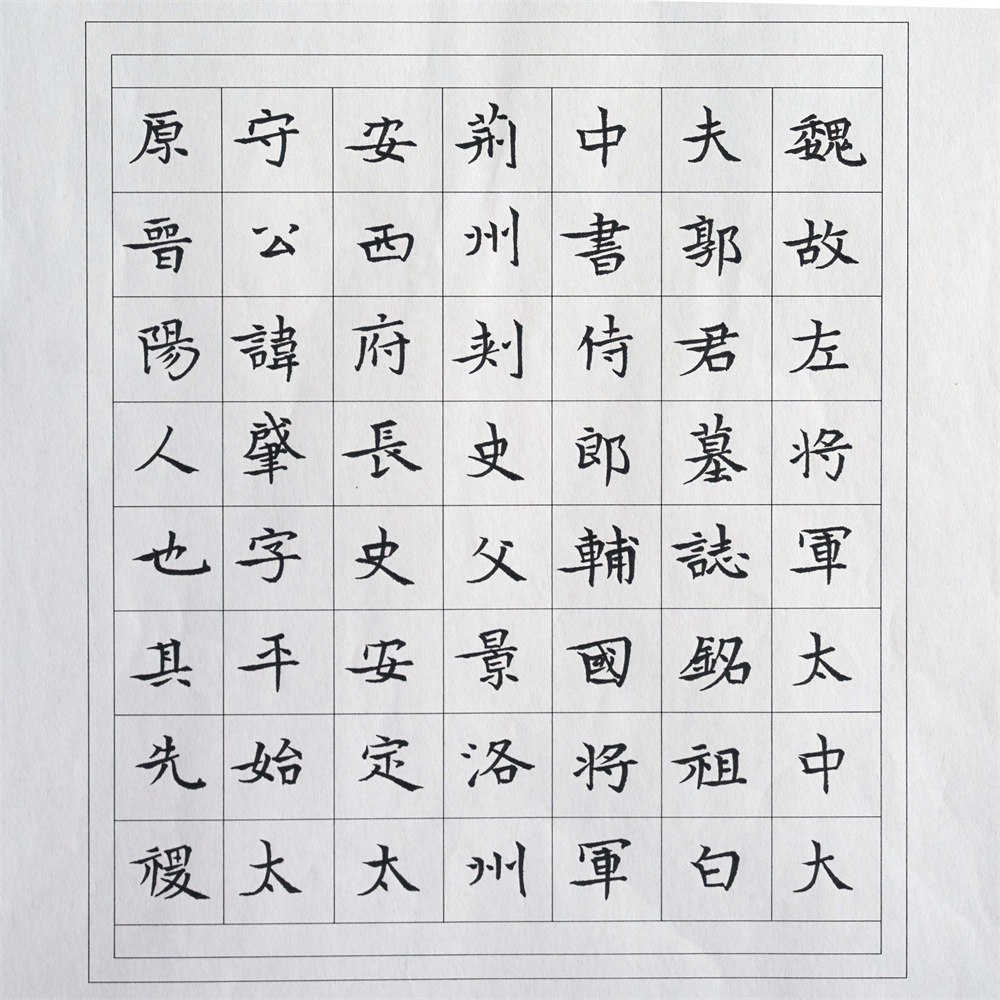 魏故左将軍太中大
夫郭君墓誌銘祖白
中書侍郎輔國将軍
荊州刾史父景洛州
安西府長史安定太
守公諱肇字平始太
原晉陽人也其先禝